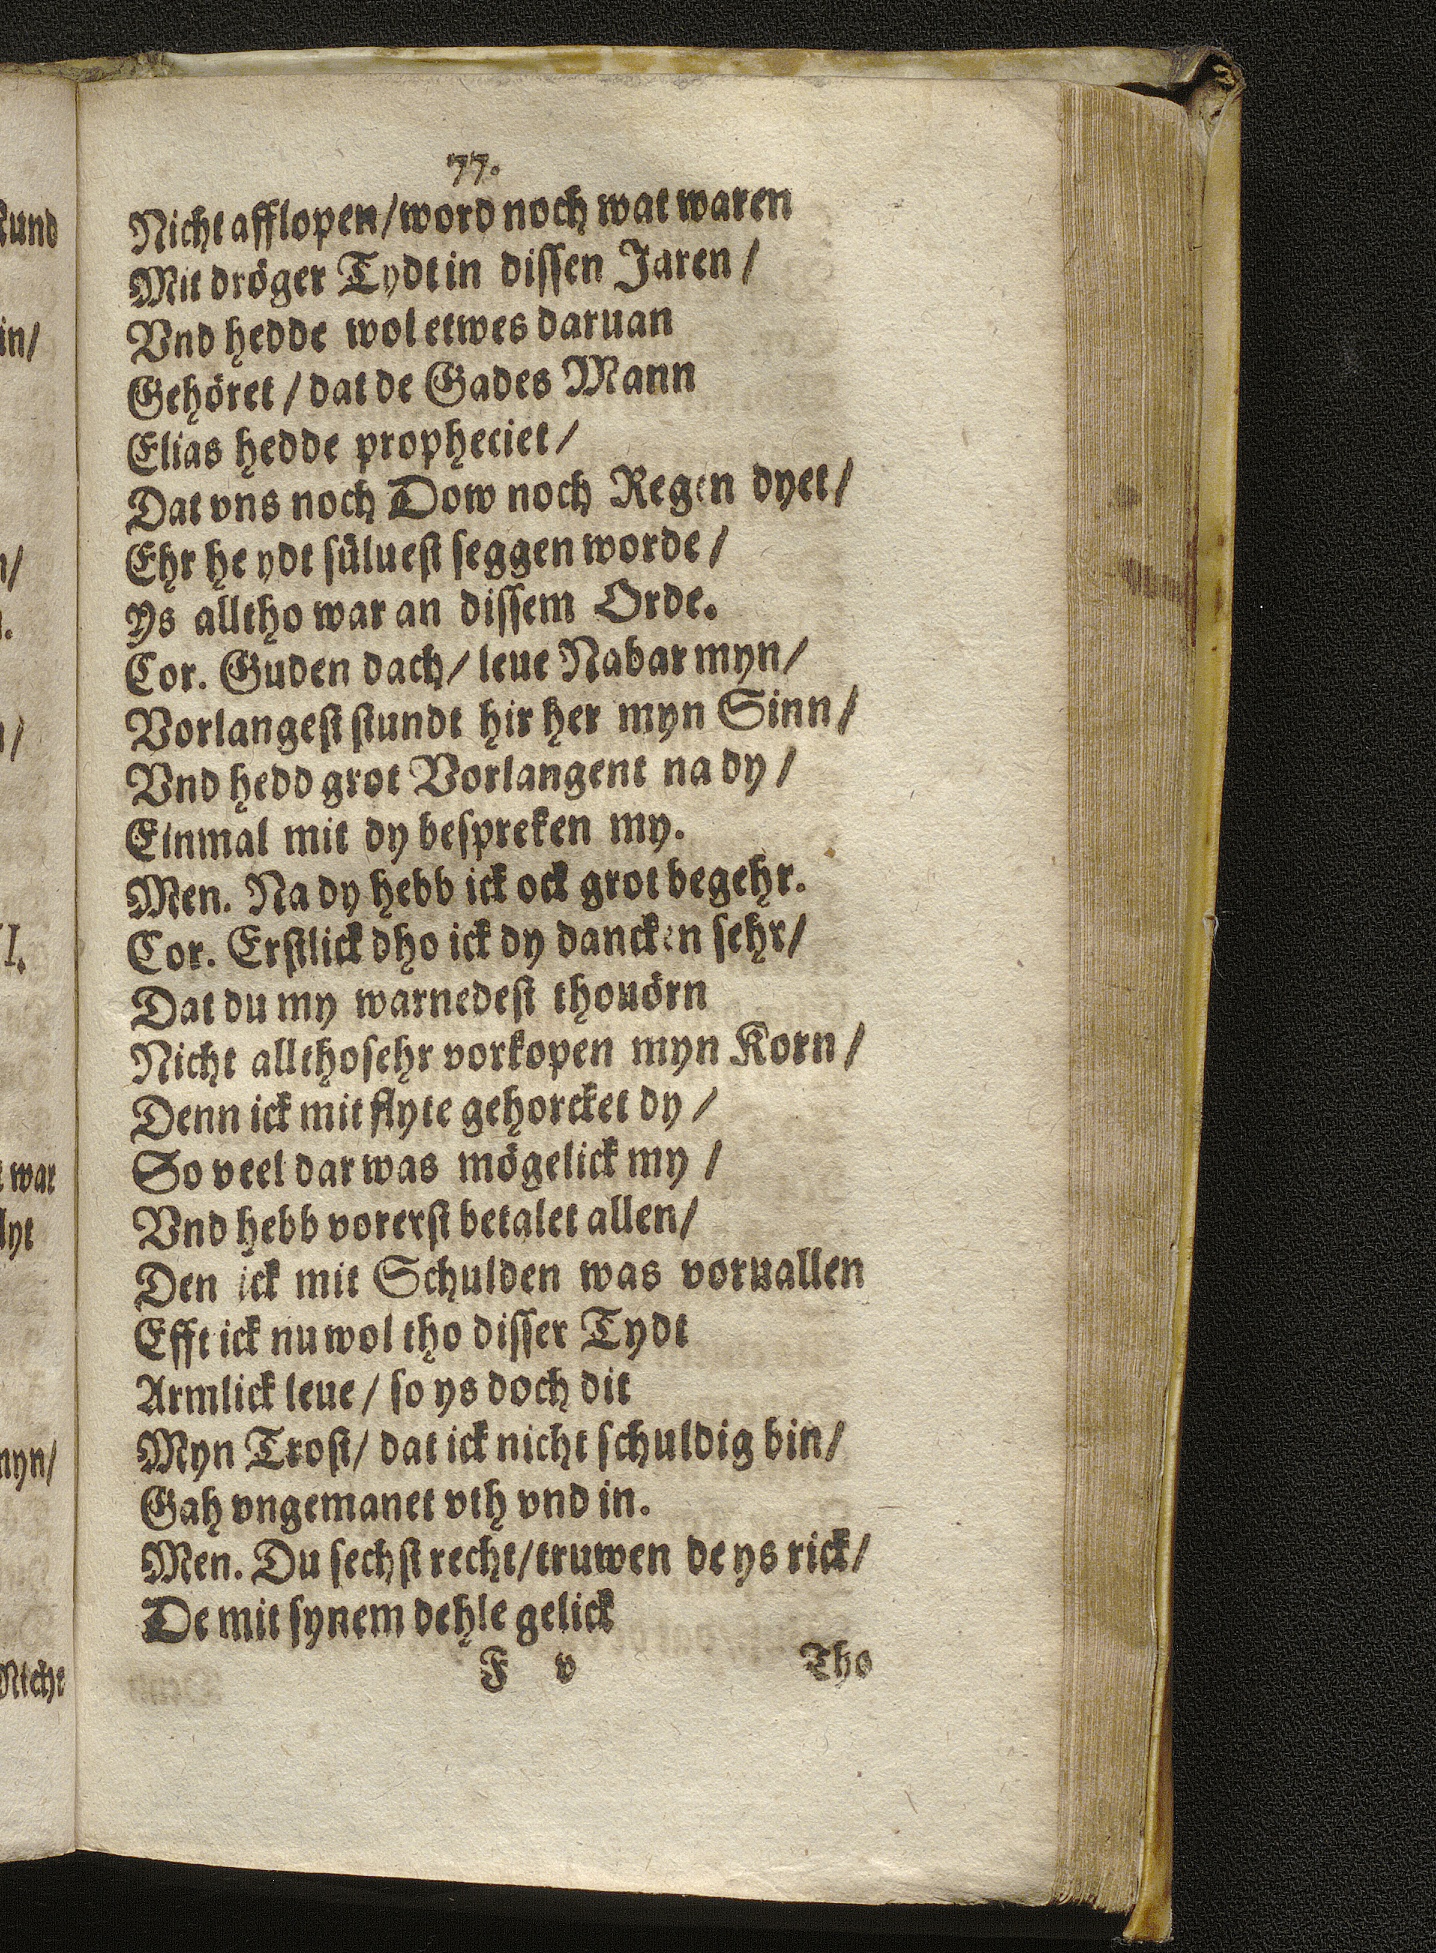 77.
Nicht afflopen/word noch wat waren
Mit dröger Tydt in dissen Jaren/
Vnd hedde wol etwes daruan
Gehöret/dat de Gades Mann
Elias hedde propheciet/
Dat vns noch Dow noch Regen dyet/
Ehr he ydt sülues­t seggen worde/
ys alltho war an dissem Orde.
Cor. Guden dach/leue Nabar myn/
Vorlangest stundt hir her myn Sinn/
Vnd hedd grot Vorlangent na dy/
Einmal mit dy bespreken my.
Men. Na dy hebb ick ock grot begehr.
Cor. Erstlick dho ick dy dancken sehr/
Dat du my warnedest thouörn
Nicht allthosehr vorkopen myn Korn/
Denn ick mit flyte gehorcket dy/
So veel dar was mögelick my/
Vnd hebb vorerst betalet allen/
Den ick mit Schulden was voruallen
Efft ick nu wol tho disser Tydt
Armlick leue/so ys doch dit
Myn Trost/dat ick nicht schuldig bin/
Gah vngemanet vth vnd in.
Men. Du sechst recht/truwen de ys rick/
De mit synem dehle gelick
F v Tho
in/
I.
war
lyt
myn/
Nicht